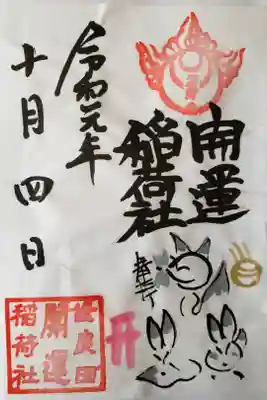 開運
稲荷社
奉拝
令和元年
十月四日
世良田
開運
稲荷社